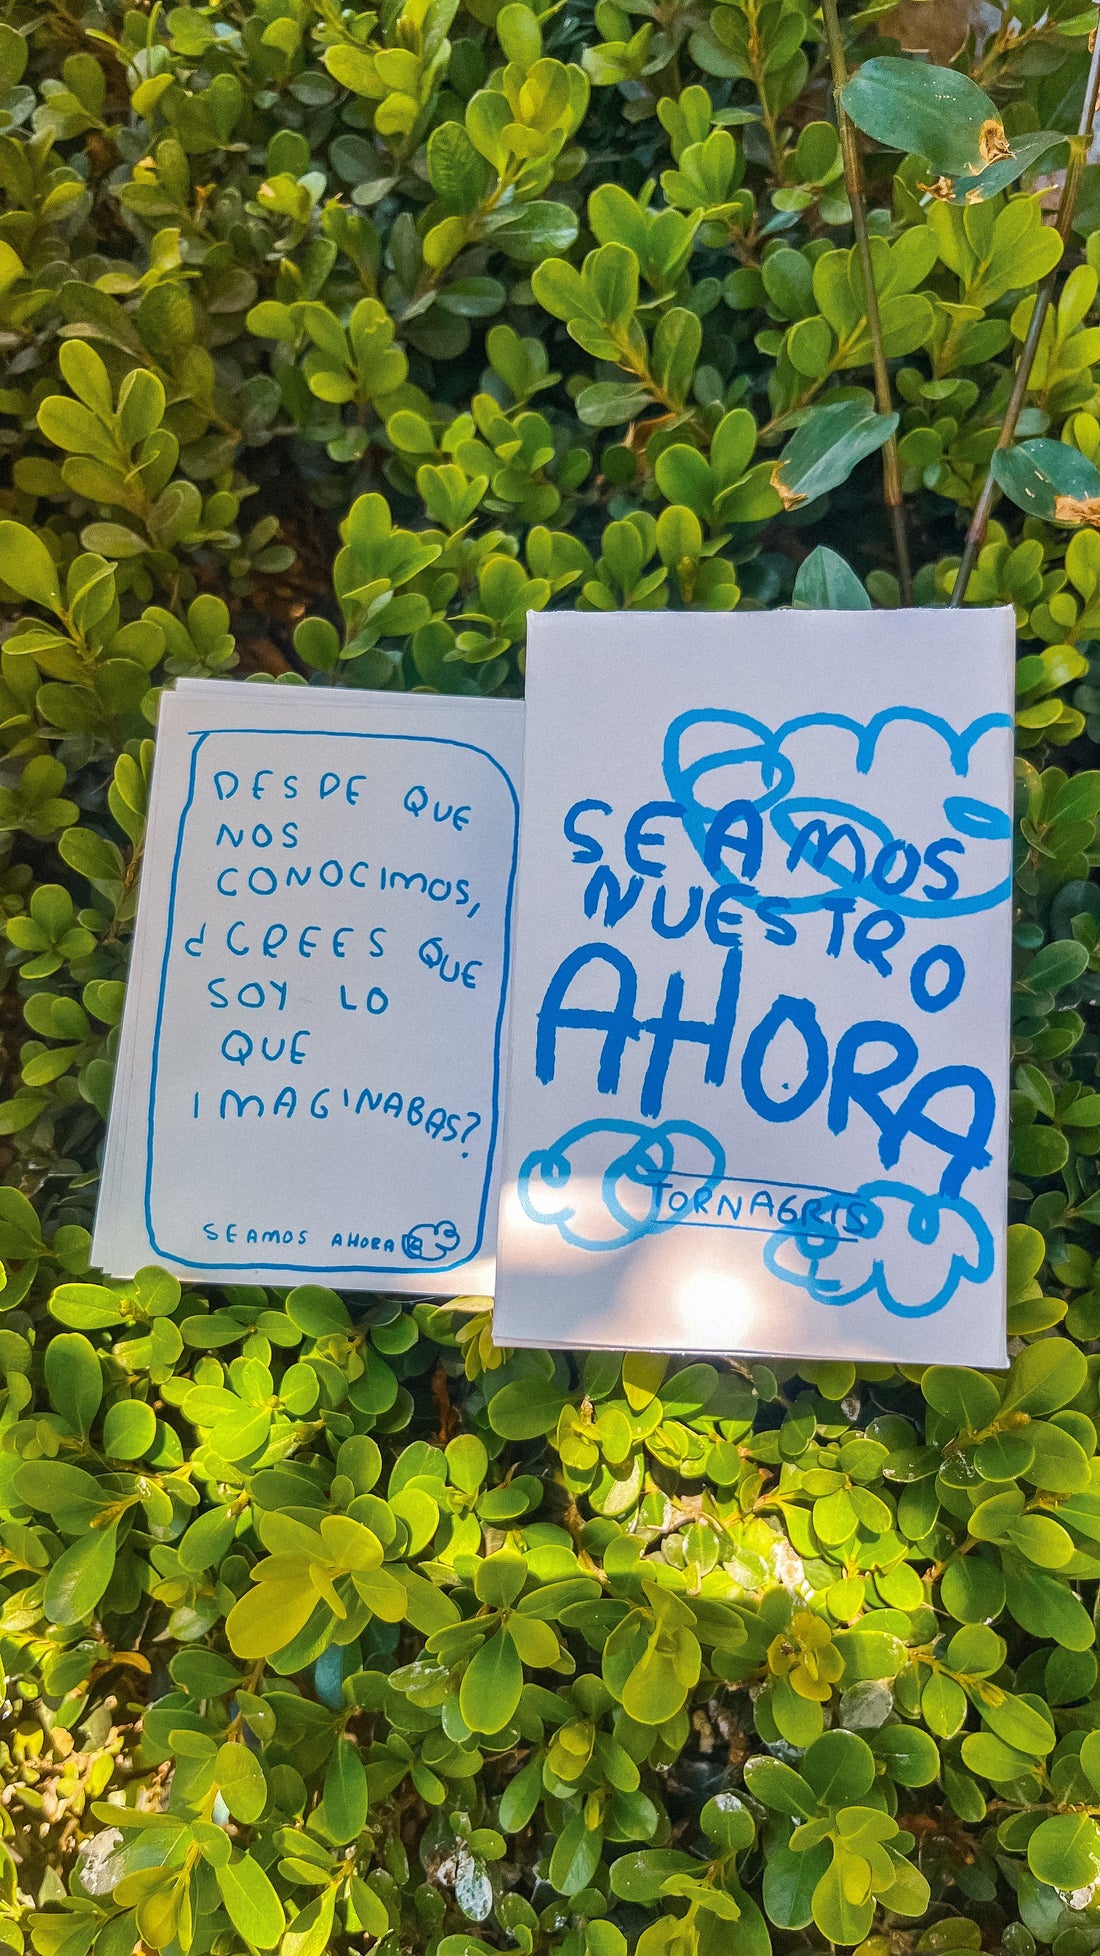 DESDE QUE
NOS
CONOCIMOS,
¿CREES QUE
SOY LO
QUE
IMAGINABAS?
SEAMOS AHORA
SEAMOS
NUESTRO
AHORA
TORNAGRIS